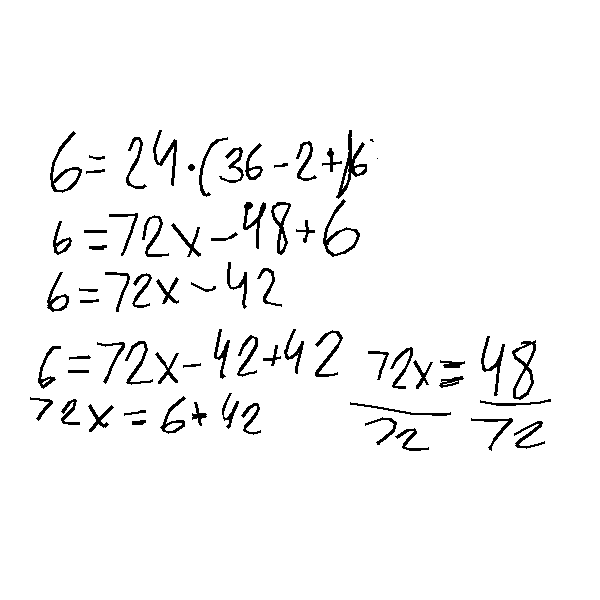 6=24·(36-2+)6
6=72x-48+6
6=72x-42
6=72x-42+42
72x=6+42
72x=48
72 72